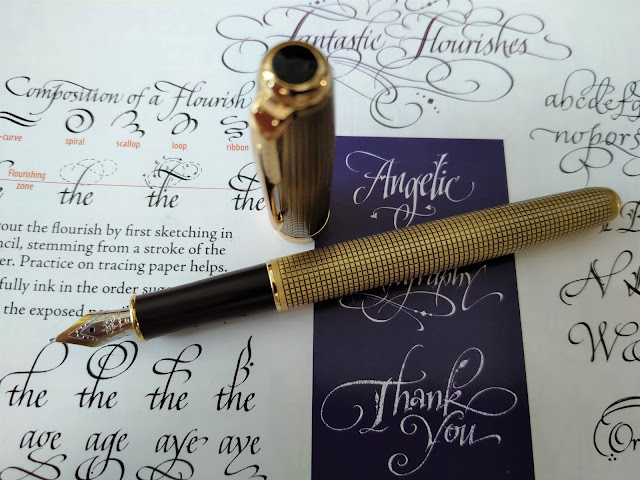 Fantastic Flourishes
Composition of a Flourish
-curve spiral scallop loop ribbon
Flourishing
zone
the the the
out the flourish by first sketching in
ncil, stemming from a stroke of the
er. Practice on tracing paper helps.
fully ink in the order
the exposed
the the the the
age age aye aye
Angelic
Thank
You
abcdef
nopqrs
W